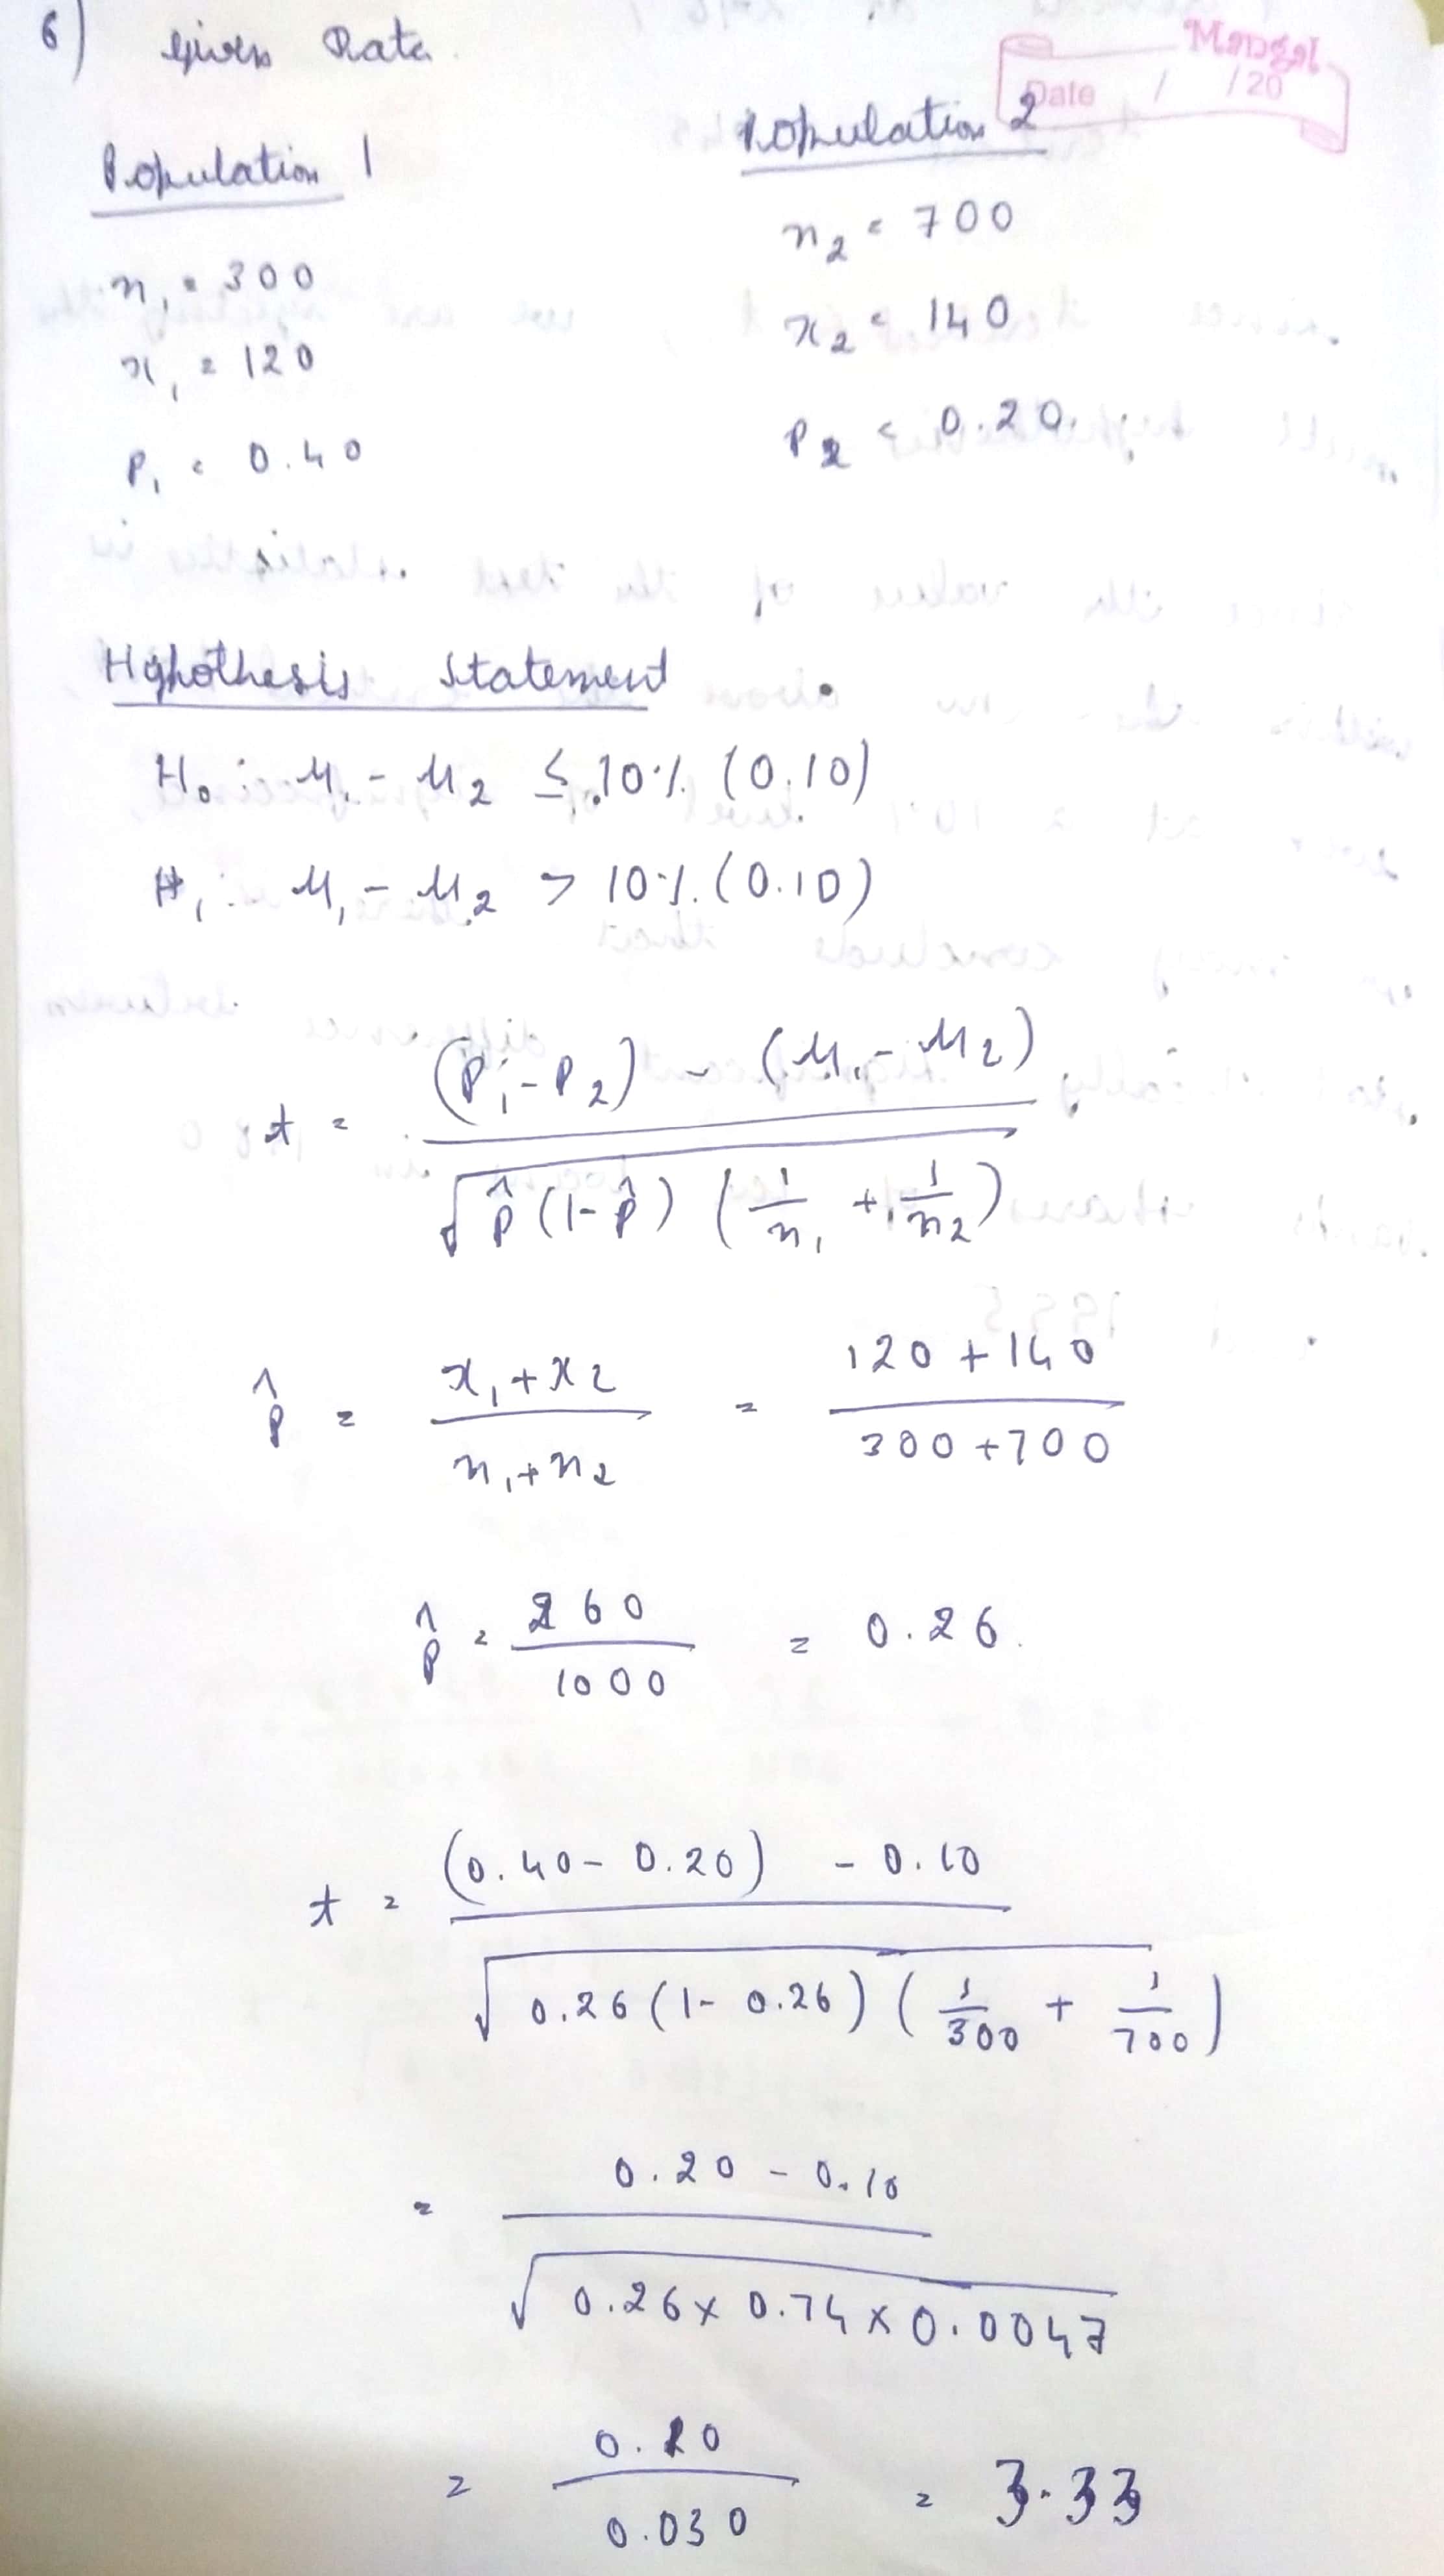 6) Given Data.
Mangal
Date / /20
Population 1
n₁ = 300
x₁ = 120
P₁ = 0.40
Population 2
n₂ = 700
x₂ = 140
P₂ = 0.20
Hyphothesis Statement
H₀ : μ₁ - μ₂ ≤ 10% (0.10)
H₁ : μ₁ - μ₂ > 10% (0.10)
t = (P₁ - P₂) - (μ₁ - μ₂) / √ p̂ (1 - p̂) (1/n₁ + 1/n₂)
p̂ = x₁ + x₂ / n₁ + n₂ = 120 + 140 / 300 + 700
p̂ = 260 / 1000 = 0.26
t = (0.40 - 0.20) - 0.10 / √ 0.26 (1 - 0.26) (1/300 + 1/700)
= 0.20 - 0.10 / √ 0.26 × 0.74 × 0.0047
= 0.10 / 0.030 = 3.33